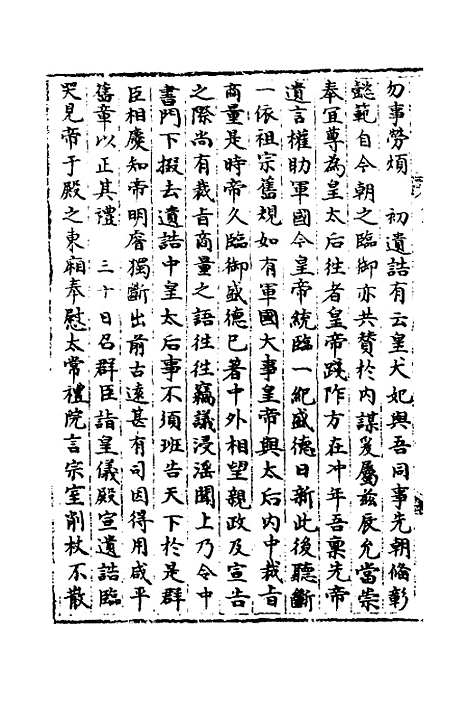 勿事勞煩　初遺誥有云皇太妃與吾同事先朝偹彰
懿範自今朝之臨御亦共贊於内謀爰屬兹辰允當崇
奉冝尊為皇太后徃者皇帝踐阼方在冲年吾禀先帝
遺言權助軍國今皇帝統臨一紀盛德日新此後聽斷
一依祖宗舊規如有軍國大事皇帝與太后内中裁旨
商量是時帝久臨御盛德已著中外相望親政及宣告
之際尚有裁旨商量之語徃徃竊議浸滛聞上乃令中
書門下掇去遺誥中皇太后事不湏班告天下於是群
臣相慶知帝明睿獨斷出前古遠甚有司因得用咸平
舊章以正其禮　三十日召群臣詣皇儀殿宣遺誥臨
哭見帝于殿之東廂奉慰太常禮院言宗室削杖不散